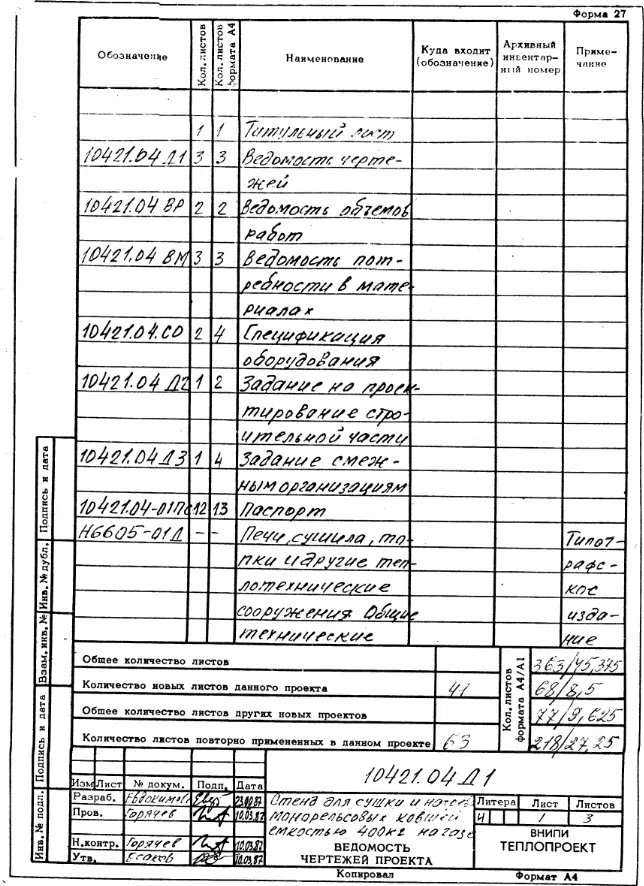 Форма 27
Обозначение Кол. листов Кол. листов формата А4 Наименование Куда входит (обозначение) Архивный инвентарный номер Примечание
1 1 Титульный лист
10421.04 Д1 3 3 Ведомость черте-
жей
10421.04 ВР 2 2 Ведомость объемов
работ
10421.04 ВМ 3 3 Ведомость пот-
ребности в мате-
риалах
10421.04.СО 2 4 Спецификация
оборудования
10421.04 Д2 1 2 Задание на проек-
тирование стро-
ительной части
10421.04 Д3 1 4 Задание смеж-
ным организациям
10421.04-01ПС 12 13 Паспорт
Н6605-01Д - - Печи, сушила, то- Типог-
пки и другие теп- рафс-
лотехнические кое
сооружения Общие изда-
технические ние
Общее количество листов 363/45,375
Количество новых листов данного проекта 41 68/8,5
Общее количество листов других новых проектов 77/9,625
Количество листов повторно примененных в данном проекте 63 218/27,25
Кол. листов формата А4/А1
Подпись и дата
Инв. № дубл.
Взам. инв. №
Подпись и дата
Инв. № подл.
10421.04 Д1
Изм Лист № докум. Подп. Дата
Разраб. Евдокимова
Пров. Горячев 10.03.87
Н.контр. Горячев 10.03.87
Утв. Есаков 10.03.87
Стенд для сушки и
монорельсовых ковшей
емкостью 400кг на газе
ВЕДОМОСТЬ
ЧЕРТЕЖЕЙ ПРОЕКТА
Литера Лист Листов
И 1 3
ВНИПИ
ТЕПЛОПРОЕКТ
Копировал Формат А4